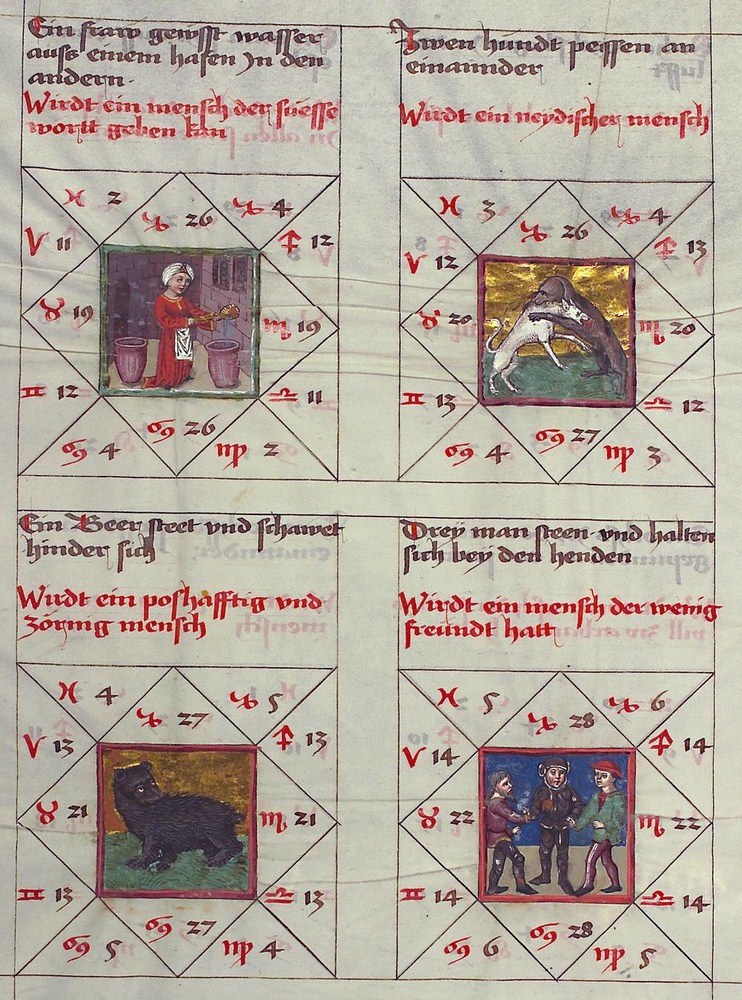 Ein fraw gewsst wasser
auß einem hafen Jn den
andern.
Wirdt ein mensch der suesse
wortt geben kan
♓ 2
♑ 26
♑ 4
♈ 11
♐ 12
♉ 19
♏ 19
♊ 12
♎ 11
♋ 4
♋ 26
♍ 2
Zwen hundt peissen an
einannder
Wirdt ein neydischer mensch
♓ 3
♑ 26
♑ 4
♈ 12
♐ 13
♉ 20
♏ 20
♊ 13
♎ 12
♋ 4
♋ 27
♍ 3
Ein Beer steet vnd schawet
hinder sich
Wirdt ein poshafftig vnd
zörnig mensch
♓ 4
♑ 27
♑ 5
♈ 13
♐ 13
♉ 21
♏ 21
♊ 13
♎ 13
♋ 5
♋ 27
♍ 4
Drey man steen vnd halten
sich bey den henden
Wirdt ein mensch der wenig
freundt hatt
♓ 5
♑ 28
♑ 6
♈ 14
♐ 14
♉ 22
♏ 22
♊ 14
♎ 14
♋ 6
♋ 28
♍ 5